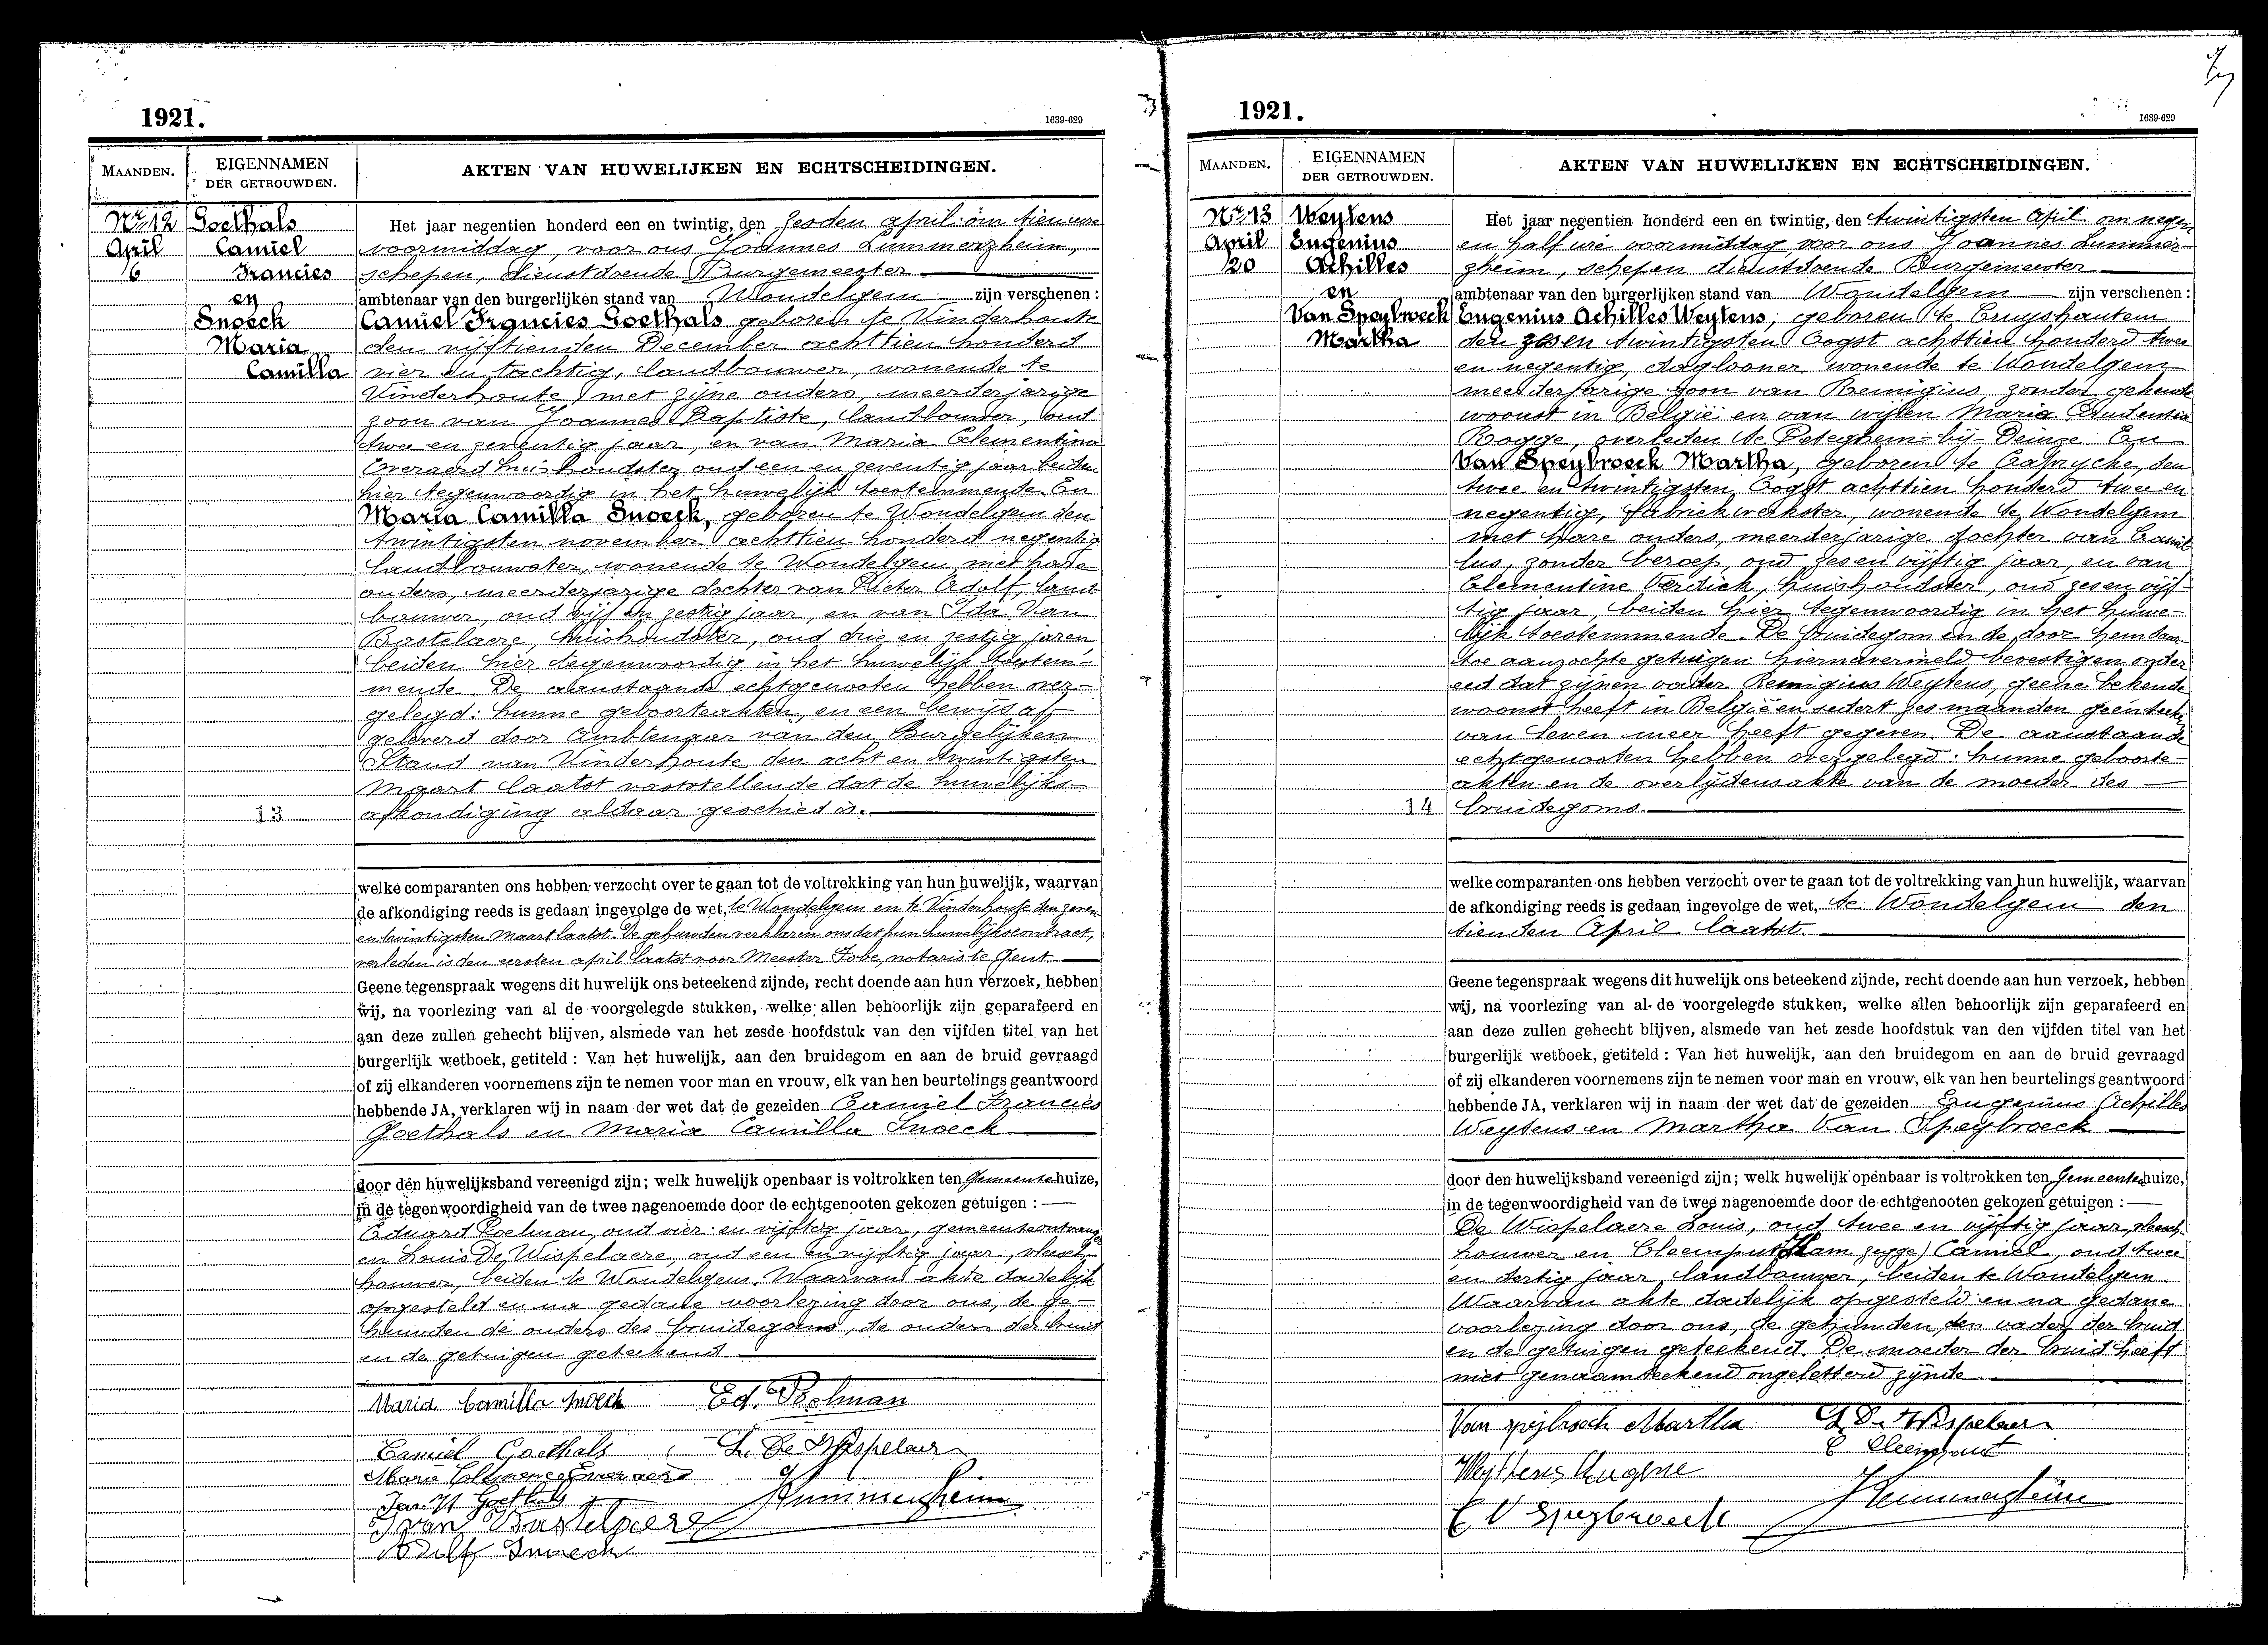 1921.
1639-629
MAANDEN.
EIGENNAMEN
DER GETROUWDEN.
AKTEN VAN HUWELIJKEN EN ECHTSCHEIDINGEN.
Nr 12
April
6
Goethals
Camiel
Francies
en
Snoeck
Maria
Camilla
Het jaar negentien honderd een en twintig, den zesden april om tien ure
voormiddag, voor ons Joannes Lummerzheim,
schepen, dienstdoende Burgemeester
ambtenaar van den burgerlijken stand van Wondelgem zijn verschenen:
Camiel Francies Goethals geboren te Vinderhoute
den vijftienden December achttien honderd
vier en tachtig, landbouwer, wonende te
Vinderhoute met zijne ouders, meerderjarige
zoon van Joannes Baptiste, landbouwer, oud
twee en zeventig jaar, en van Maria Clementina
Everaerd huishoudster oud een en zeventig jaar beiden
hier tegenwoordig in het huwelijk toestemmende. En
Maria Camilla Snoeck, geboren te Wondelgem den
twintigsten november achttien honderd negentig
landbouwster, wonende te Wondelgem met hare
ouders, meerderjarige dochter van Pieter Adolf, land
bouwer, oud vijf en zestig jaar, en van Ida Van
Bastelaere, huishoudster, oud drie en zestig jaren,
beiden hier tegenwoordig in het huwelijk toestem-
mende. De aanstaande echtgenooten hebben over-
gelegd: hunne geboorteakten, en een bewijs af
geleverd door Ambtenaar van den Burgelijken
Stand van Vinderhoute den acht en twintigsten
Maart laatst vaststellende dat de huwelijks-
afkondiging aldaar geschied is.
13
welke comparanten ons hebben verzocht over te gaan tot de voltrekking van hun huwelijk, waarvan
de afkondiging reeds is gedaan ingevolge de wet, te Wondelgem en te Vinderhoute den zeven
en twintigsten Maart laatst. De gehuwden verklaren ons dat hun huwelijkscontract,
verleden is den eersten april laatst voor Meester Fobe, notaris te Gent
Geene tegenspraak wegens dit huwelijk ons beteekend zijnde, recht doende aan hun verzoek, hebben
wij, na voorlezing van al de voorgelegde stukken, welke allen behoorlijk zijn geparafeerd en
aan deze zullen gehecht blijven, alsmede van het zesde hoofdstuk van den vijfden titel van het
burgerlijk wetboek, getiteld: Van het huwelijk, aan den bruidegom en aan de bruid gevraagd
of zij elkanderen voornemens zijn te nemen voor man en vrouw, elk van hen beurtelings geantwoord
hebbende JA, verklaren wij in naam der wet dat de gezeiden Camiel Francies
Goethals en Maria Camilla Snoeck
door den huwelijksband vereenigd zijn; welk huwelijk openbaar is voltrokken ten Gemeentehuize,
in de tegenwoordigheid van de twee nagenoemde door de echtgenooten gekozen getuigen:
Eduard Poelman, oud vier en vijftig jaar, gemeenteontvanger
en Louis De Wispelaere, oud een en vijftig jaar, vleesch-
houwer, beiden te Wondelgem. Waarvan akte dadelijk
opgesteld en na gedane voorlezing door ons, de ge-
huwden de ouders des bruidegoms, de ouders der bruid
en de getuigen geteekend
Maria Camilla Snoeck Ed. Poelman
Camiel Goethals L. De Wispelaere
Marie Clemence Everaerd
Jan Bt Goethals JLummerzheim
I van Bastelaere
Adolf Snoeck
1921.
1639-629
MAANDEN.
EIGENNAMEN
DER GETROUWDEN.
AKTEN VAN HUWELIJKEN EN ECHTSCHEIDINGEN.
Nr 13
April
20
Weytens
Eugenius
Achilles
en
Van Speybroeck
Martha
Het jaar negentien honderd een en twintig, den twintigsten April om negen
en half ure voormiddag voor ons Joannes Lummer-
zheim, schepen dienstdoende Burgemeester
ambtenaar van den burgerlijken stand van Wondelgem zijn verschenen:
Eugenius Achilles Weytens, geboren te Cruyshautem
den zes en twintigsten Oogst achttien honderd twee
en negentig, daglooner wonende te Wondelgem
meerderjarige zoon van Remigius, zonder gekende
woonst in België en van wijlen Maria Prudentia
Rogge, overleden te Peteghem-bij-Deinze. En
Van Speybroeck Martha, geboren te Caprycke, den
twee en twintigsten Oogst achttien honderd twee en
negentig, fabriekwerkster, wonende te Wondelgem
met hare ouders, meerderjarige dochter van Camil
lus, zonder beroep, oud zes en vijftig jaar, en van
Clementine Verdick, huishoudster, oud zes en vijf-
tig jaar, beiden hier tegenwoordig in het huwe-
lijk toestemmende. De bruidegom en de door hem daar-
toe aanzochte getuigen hiernavermeld bevestigen onder
eed dat zijnen vader Remigius Weytens, geene bekende
woonst heeft in België en sedert zes maanden geen teeken
van leven meer heeft gegeven. De aanstaande
echtgenooten hebben overgelegd: hunne geboorte-
akten en de overlijdensakte van de moeder des
bruidegoms.
14
welke comparanten ons hebben verzocht over te gaan tot de voltrekking van hun huwelijk, waarvan
de afkondiging reeds is gedaan ingevolge de wet, te Wondelgem den
tienden April laatst.
Geene tegenspraak wegens dit huwelijk ons beteekend zijnde, recht doende aan hun verzoek, hebben
wij, na voorlezing van al de voorgelegde stukken, welke allen behoorlijk zijn geparafeerd en
aan deze zullen gehecht blijven, alsmede van het zesde hoofdstuk van den vijfden titel van het
burgerlijk wetboek, getiteld: Van het huwelijk, aan den bruidegom en aan de bruid gevraagd
of zij elkanderen voornemens zijn te nemen voor man en vrouw, elk van hen beurtelings geantwoord
hebbende JA, verklaren wij in naam der wet dat de gezeiden Eugenius Achilles
Weytens en Martha Van Speybroeck
door den huwelijksband vereenigd zijn; welk huwelijk openbaar is voltrokken ten Gemeentehuize,
in de tegenwoordigheid van de twee nagenoemde door de echtgenooten gekozen getuigen:
De Wispelaere Louis, oud twee en vijftig jaar, vleesch-
houwer en Cleemput zegge) Camiel, oud twee
en dertig jaar landbouwer, beiden te Wondelgem
Waarvan akte dadelijk opgesteld en na gedane
voorlezing door ons, de gehuwden, den vader der bruid
en de getuigen geteekend. De moeder der bruid heeft
niet genaamteekend ongeletterd zijnde
Van speijbroeck Martha L De Wispelaere
C Cleemput
Weyttens Eugene
JLummerzheim
C V Speybroeck